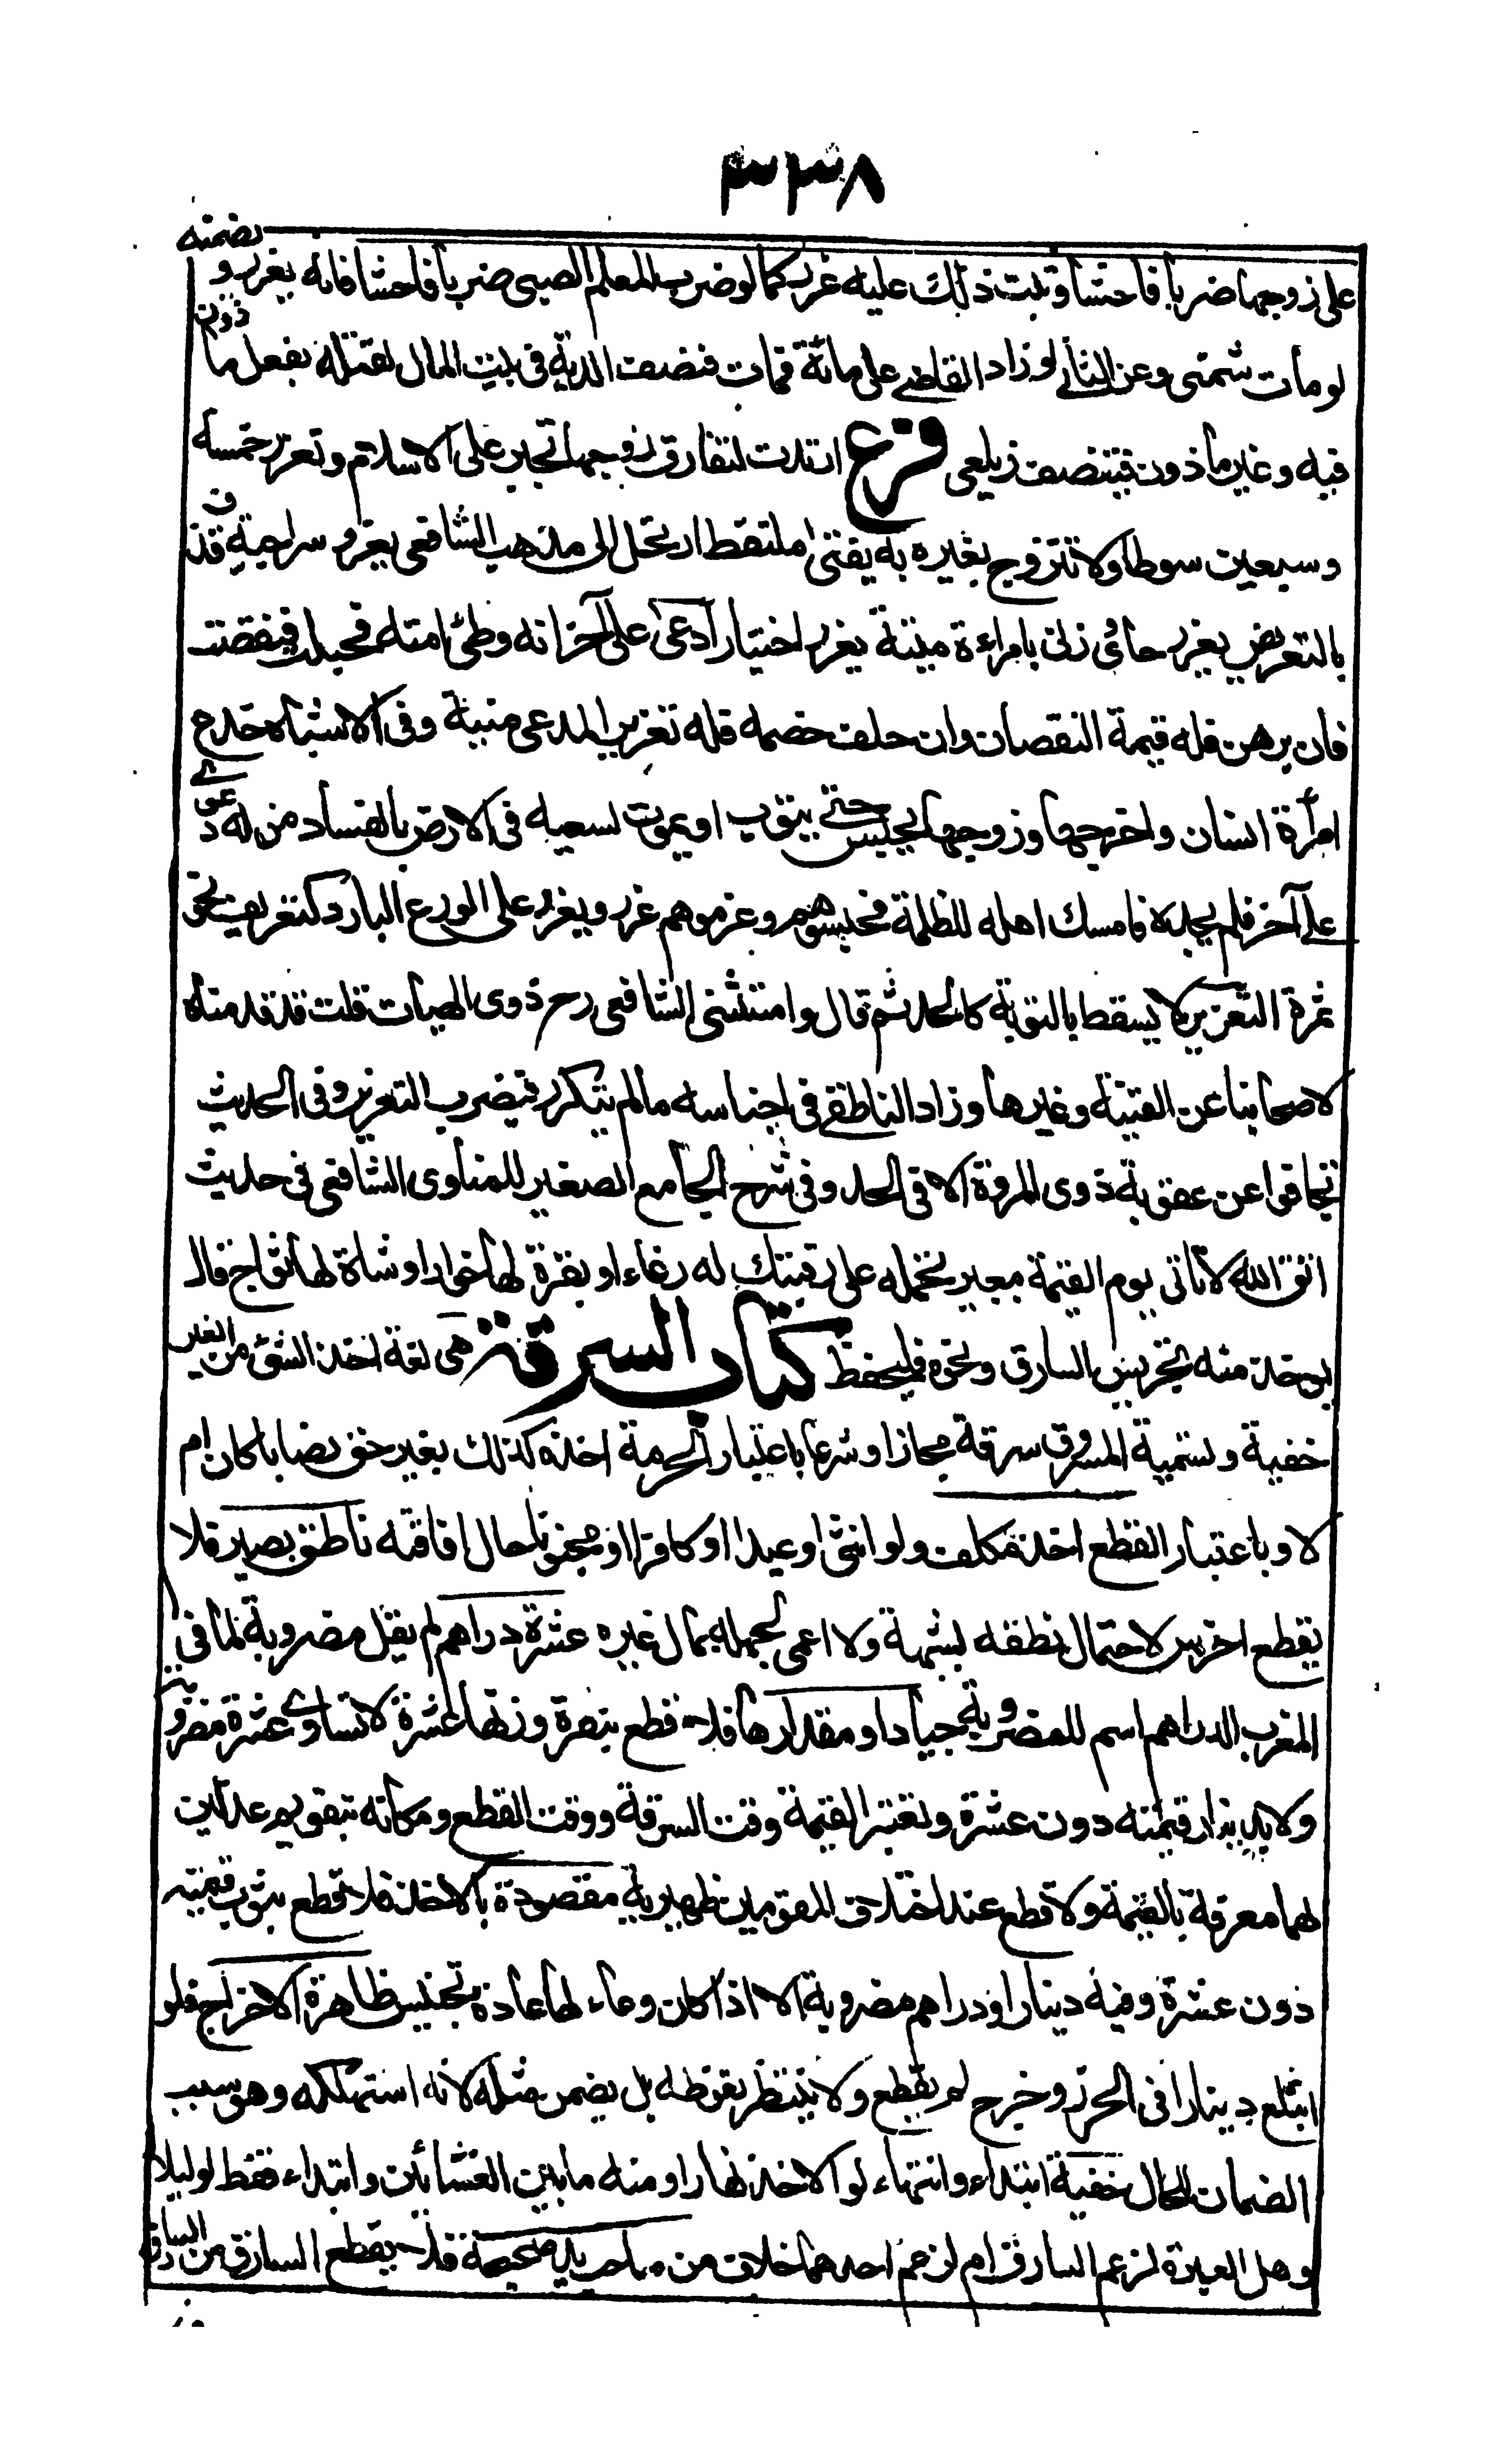 ٣٣٨
على زوجها ضربا فاحشا وثبت ذلك عليه عزر كما لو ضرب المعلم الصبى ضربا فاحشا فانه يعزر و يضمنه
لو مات شمنى وعن الثانى لو زاد القاضى على مائة فمات فنصف الدية فى بيت المال لقتله بفعل ماذون
فيه وغير ماذون فيتنصف زيلعى فرع ارتدت لتفارق زوجها تجبر على الاسلام وتعزر خمسة
وسبعين سوطا ولا تتزوج بغيره به يفتى ملتقط ارتحل الى مذهب الشافعى يعزر سراجية قذف
بالتعريض يعزر حاوى زنى بامراءة ميتة يعزر اختيار ادعى على آخر انه وطئ امته فحبلت فنقصت
فان برهن فله قيمة النقصان وان حلف خصمه فله تعزير المدعى منية وفى الاشباه خدع
امرأة انسان واخرجها وزوجها يحبس حتى يتوب او يموت لسعيه فى الارض بالفساد من له دعوى
على آخر فلم يجده فامسك اهله للظلمة فحبسوهم وغرموهم عزر ويعزر على الورع البارد كتعريف نحو
تمرة التعزير لا يسقط بالتوبة كالحد ثم قال واستثنى الشافعى رح ذوى الهيات قلت قد قدمناه
لاصحابنا عن القنية وغيرها وزاد الناطفى فى اجناسه مالم يتكرر فيضرب التعزير وفى الحديث
تجافوا عن عقوبة ذوى المروة الا فى الحد وفى شرح الجامع الصغير للمناوى الشافعى فى حديث
اتق الله لا تاتى يوم القيمة ببعير تحمله على رقبتك له رغاء او بقرة لها خوار او شاة لها ثواج قال
يوخذ منه تجريس السارق ونحوه فليحفظ كتاب السرقة هى لغة اخذ الشئ من الغير
خفية وتسمية المسروق سرقة مجازا وشرعا باعتبار الحرمة اخذه كذلك بغير حق نصابا كان ام
لا وباعتبار القطع اخذ مكلف ولو انثى او عبدا او كافرا او مجنونا حال افاقته ناطق بصير فلا
يقطع اخرس لاحتمال نطقه بشبهة ولا اعمى لجهله بمال غيره عشرة دراهم لم يقل مضروبة لما فى
المغرب الدراهم اسم للمضروبة جياد او مقدارها فلا قطع بنقرة وزنها عشرة لا تساوى عشرة مضروبة
ولا بدينار قيمته دون عشرة وتعتبر القيمة وقت السرقة ووقت القطع ومكانه بتقويم عدلين
لهما معرفة بالقيمة ولا قطع عند اختلاف المقومين ظهيرية مقصودة بالاخذ فلا قطع بثوب قيمته
دون عشرة وفيه دينار او دراهم مضروبة الا اذا كان وعاء لها عادة تجنيس ظاهرة الاخراج فلو
ابتلع دينارا فى الحرز وخرج لم يقطع ولا ينتظر تغوطه بل يضمن مثله لانه استهلكه وهو سبب
الضمان للحال خفية ابتداء وانتهاء لو الاخذ نهارا ومنه ما بين العشائين وابتداء فقط لو ليلا
وهل العبرة لزعم السارق ام لزعم احدهما خلاف من صاحب يد صحيحة فلا يقطع السارق من السارق